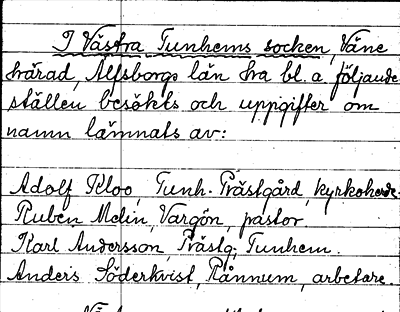 I Västra Tunhems socken, Väne
härad, Älfsborgs län ha bl. a. följande
ställen besökts och uppgifter om
namn lämnats av:
Adolf Kloo, Tunh. Prästgård, kyrkoherde.
Ruben Melin, Vargön, pastor
Karl Andersson, Prästg., Tunhem.
Anders Söderkvist, Rånnum, arbetare.